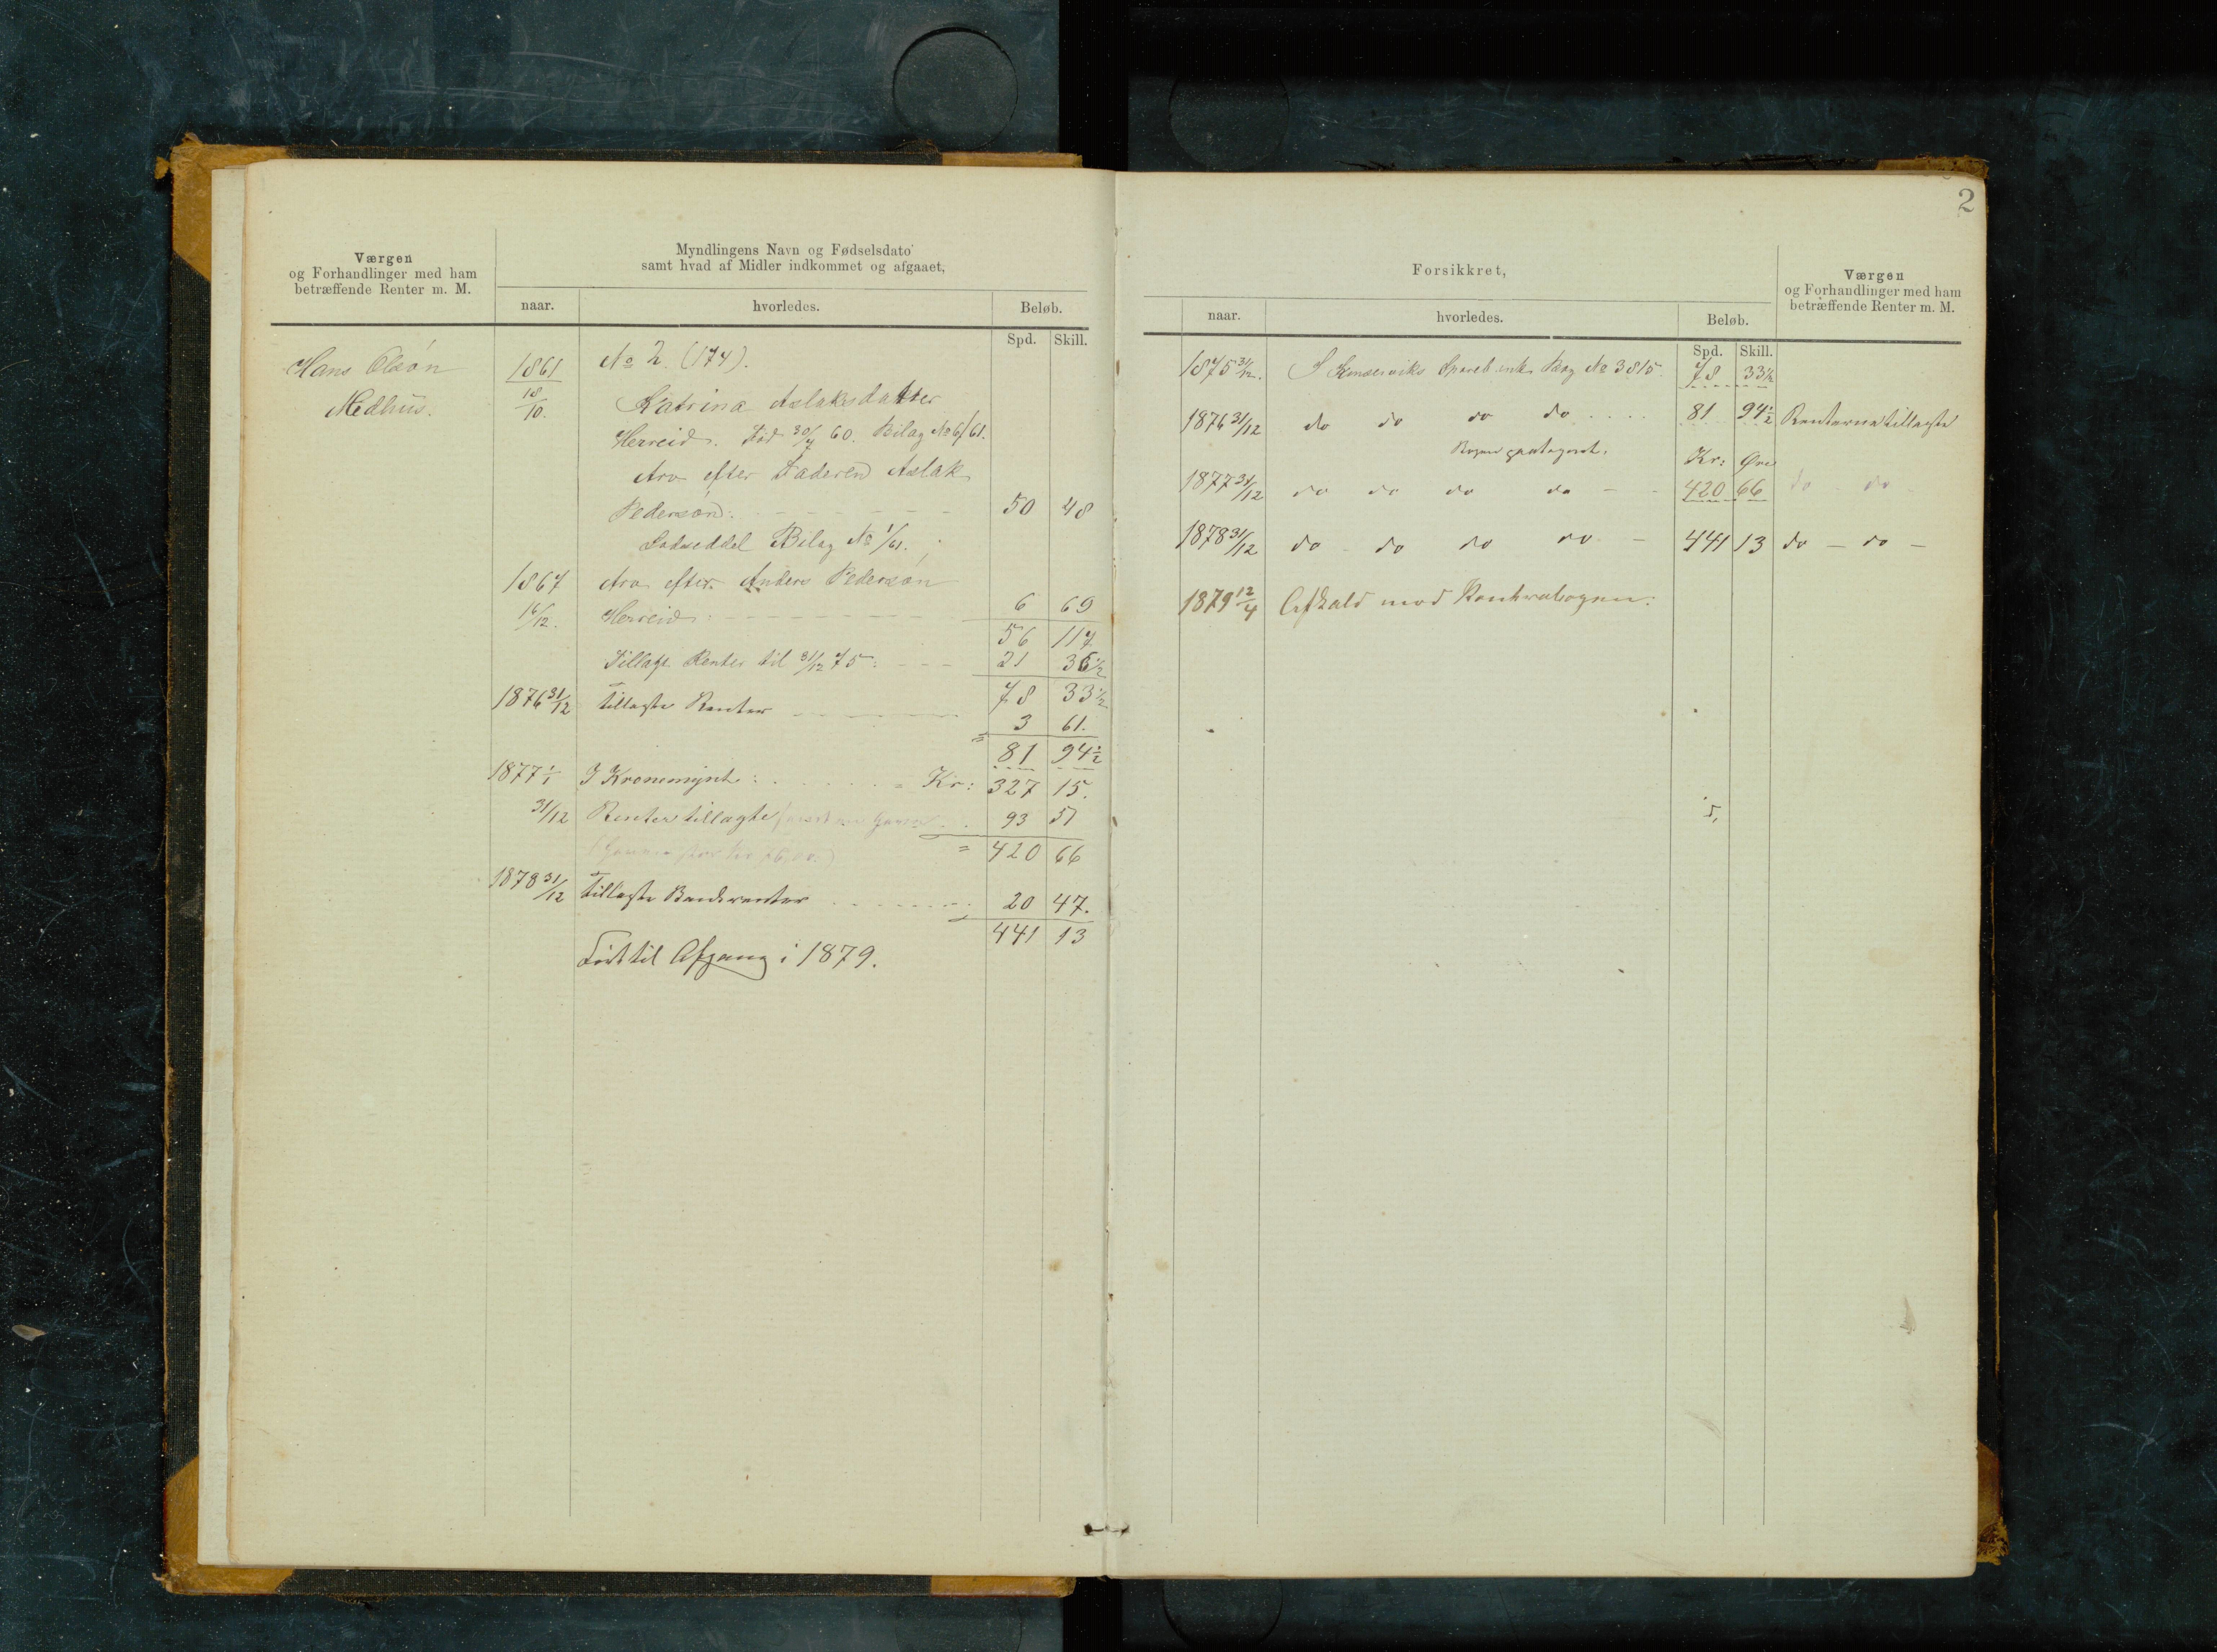 2
Værgen
og Forhandlinger med ham
betræffende Renter m. M.
Myndlingens Navn og Fødselsdato
samt hvad af Midler indkommet og afgaaet,
naar. hvorledes. Beløb.
Spd. Skill.
Hans Olsøn
Medhus.
1861
18/10.
No 2. (174).
Katrina Aslaksdatter
Herreid. Fød 30/4 60. Bilag No 6/61.
Arv efter Faderen Aslak
Pedersøn: 50 48
Lodseddel Bilag No 1/61.
1867 Arv efter Anders Pedersøn
16/12. Herreid: 6 69
56 117
Tillagt Renter til 31/12 75: 21 36 1/2
78 33 1/2
1876 31/12 tillagte Renter
3 61.
= 81 94 1/2
1877 1/1 I Kronemynt: = Kr: 327 15.
31/12 Renter tillagte 93 51
= 420 66
1878 31/12 tillagte Bankrenter 20 47.
441 13
Ført til Afgang i 1879.
Forsikkret,
Værgen
og Forhandlinger med ham
betræffende Renter m. M.
naar. hvorledes. Beløb.
Spd. Skill.
1875 31/12. I Kinserviks Sparebank Bog No 3815. 78 33 1/2
1876 31/12 do do do do .... 81 94 1/2 Renterne tillagte
Kr: Øre
1877 31/12 do do do do - - 420 66 do - do
1878 31/12 do - do do do - 441 13 do - do -
1879 12/4 Afkald mod Kontrabogen: